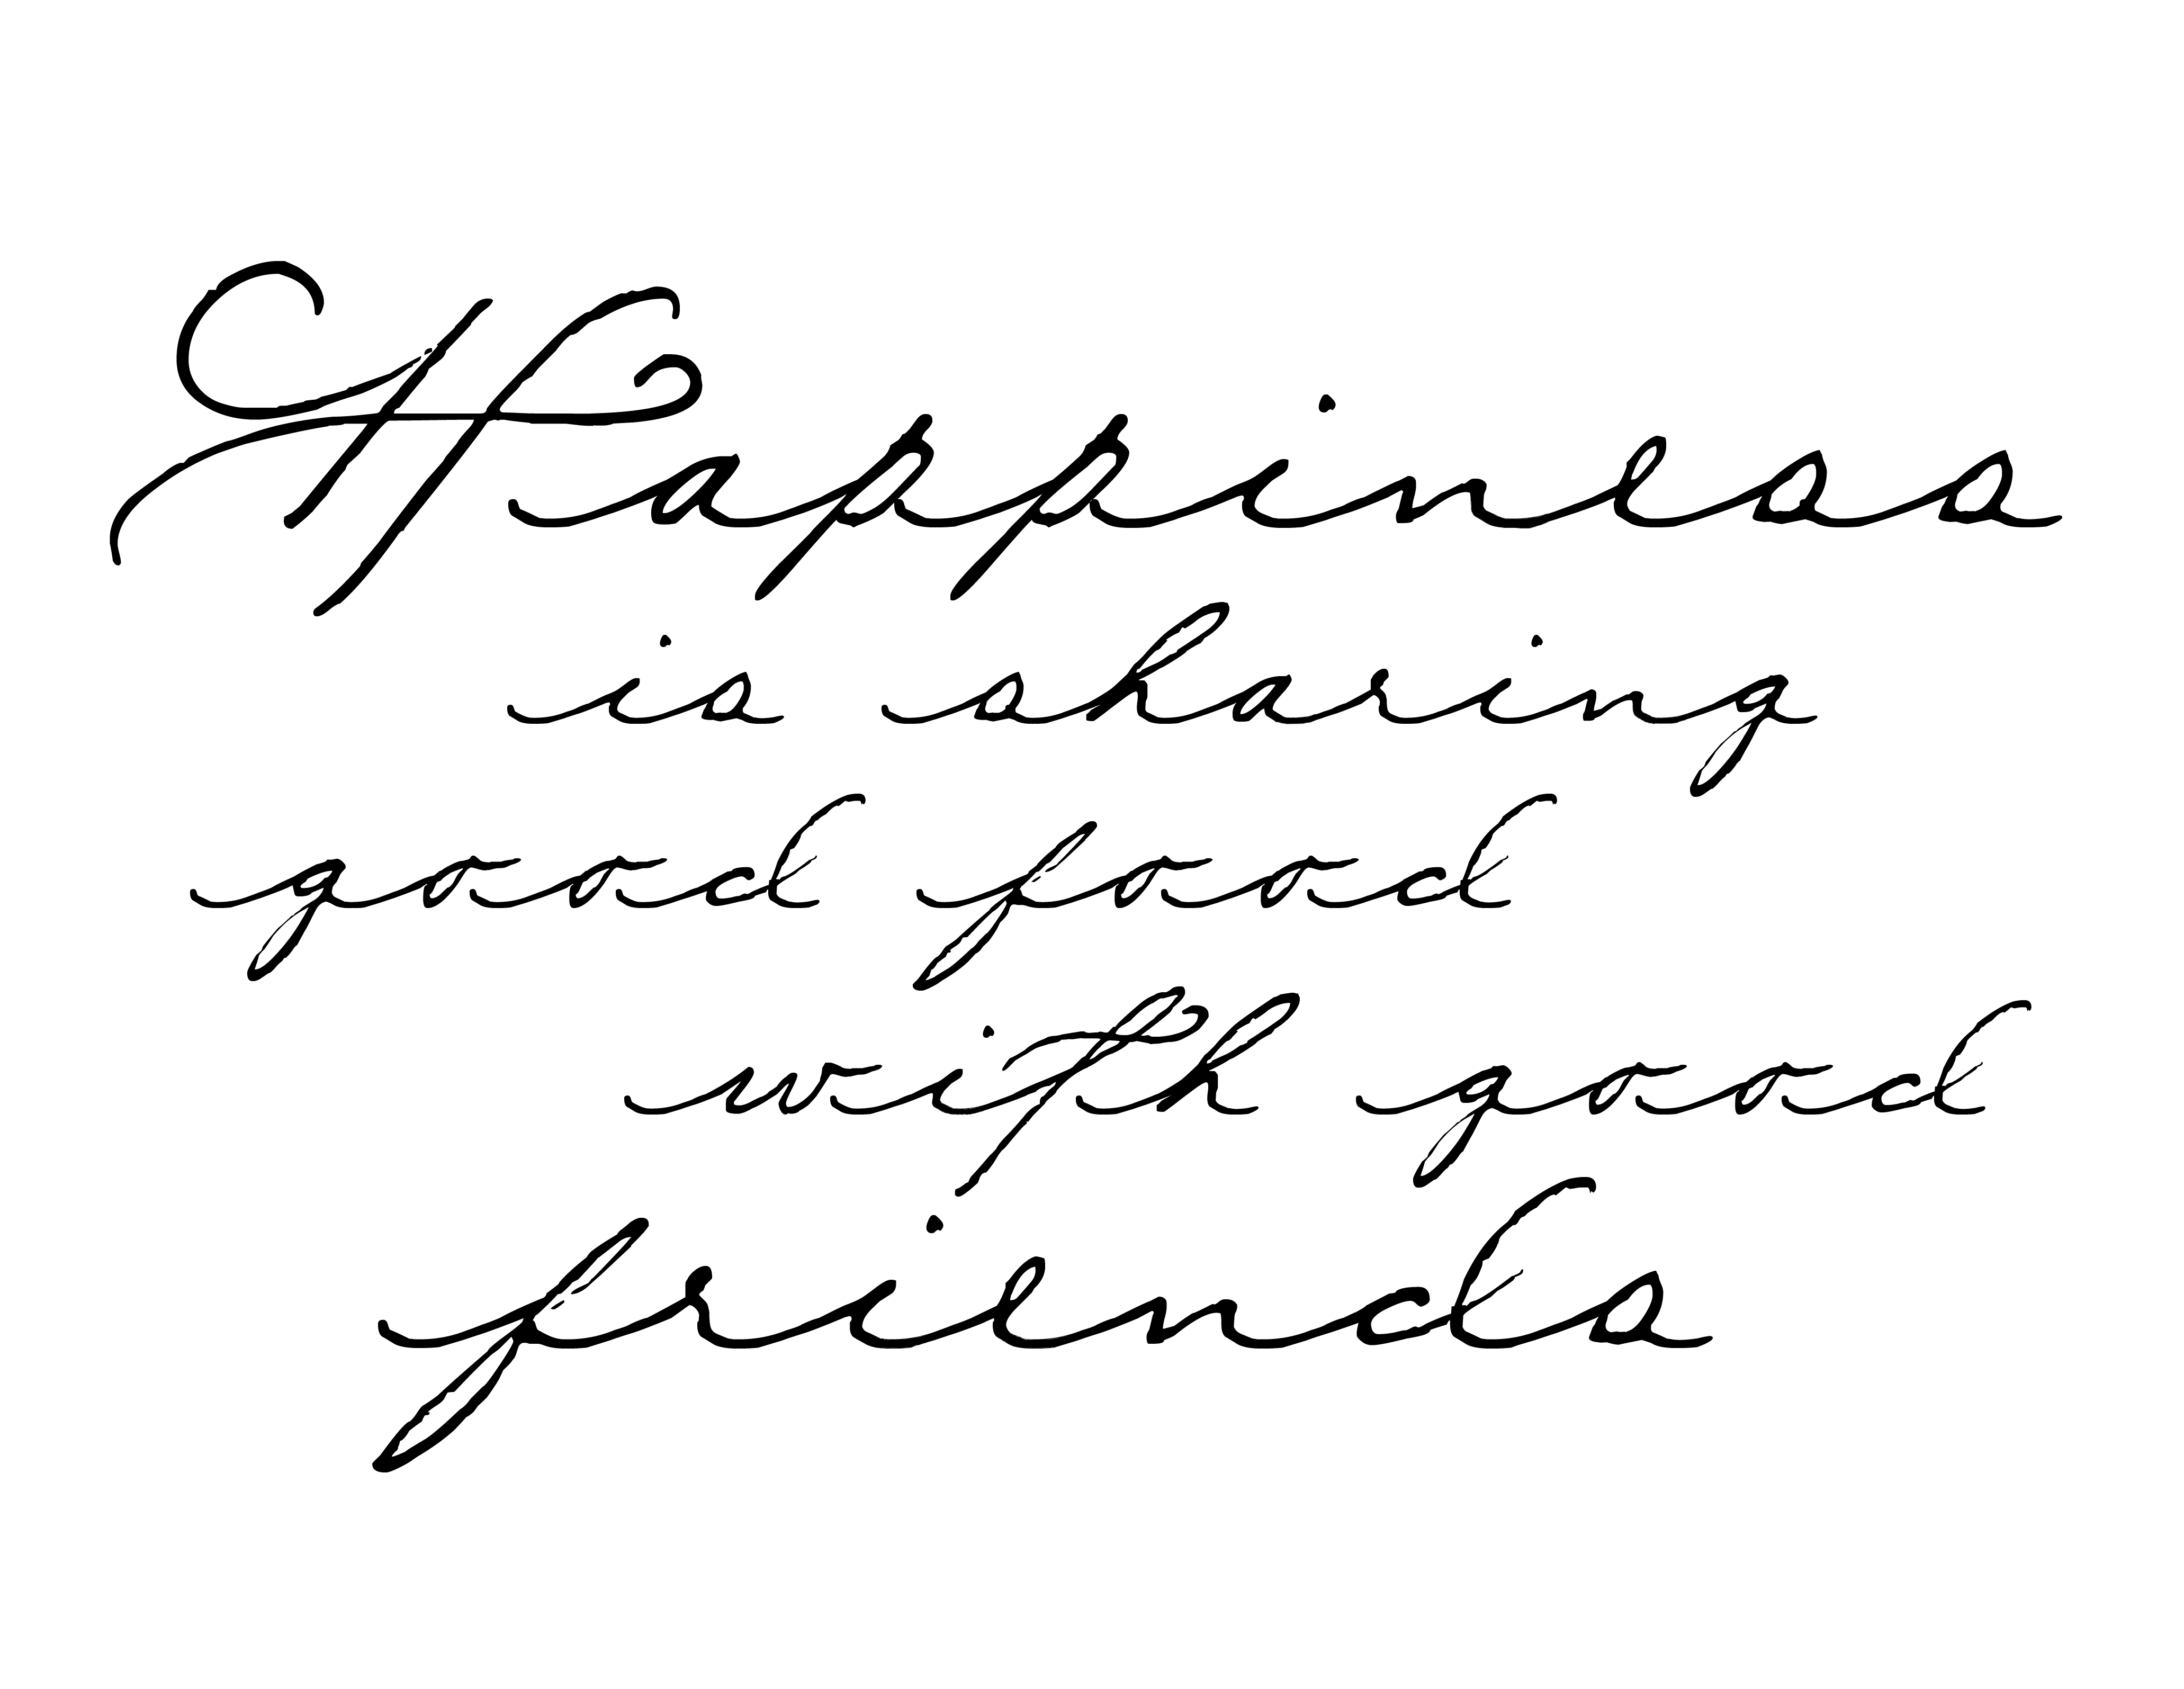 Happiness
is sharing
good food
with good
friends